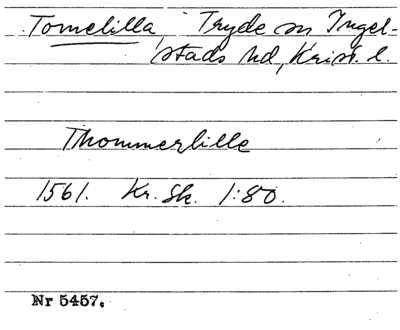 Tomelilla, Tryde sn Ingel-
stads hd, Krist. l.
Thommerlille
1561. Kr. Sk. 1:80.
Nr 5457.